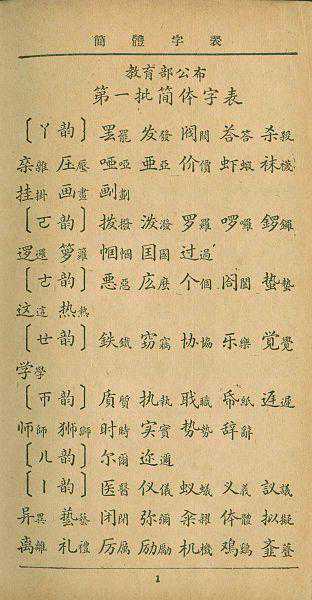 簡體字表
教育部公布
第一批简体字表
〔ㄚ韵〕罢罷 发發 阀閥 荅答 杀殺
杂雜 压壓 哑啞 亚亞 价價 虾蝦 袜襪
挂掛 画畫 劃
〔ㄛ韵〕拨撥 泼潑 罗羅 啰囉 锣鑼
逻邏 箩籮 帼幗 国國 过過
〔ㄜ韵〕恶惡 庅麼 个個 阁閣 蛰蟄
这這 热熱
〔ㄝ韵〕鉄鐵 窃竊 协協 乐樂 覚覺
学學
〔ㄭ韵〕质質 执執 职職 帋紙 迟遲
师師 狮獅 时時 实實 势勢 辞辭
〔ㄦ韵〕尔爾 迩邇
〔ㄧ韵〕医醫 仪儀 蚁蟻 义義 议議
异異 藝 闭閉 弥彌 籴糴 体體 拟擬
离離 礼禮 厉厲 励勵 机機 鸡鷄
1